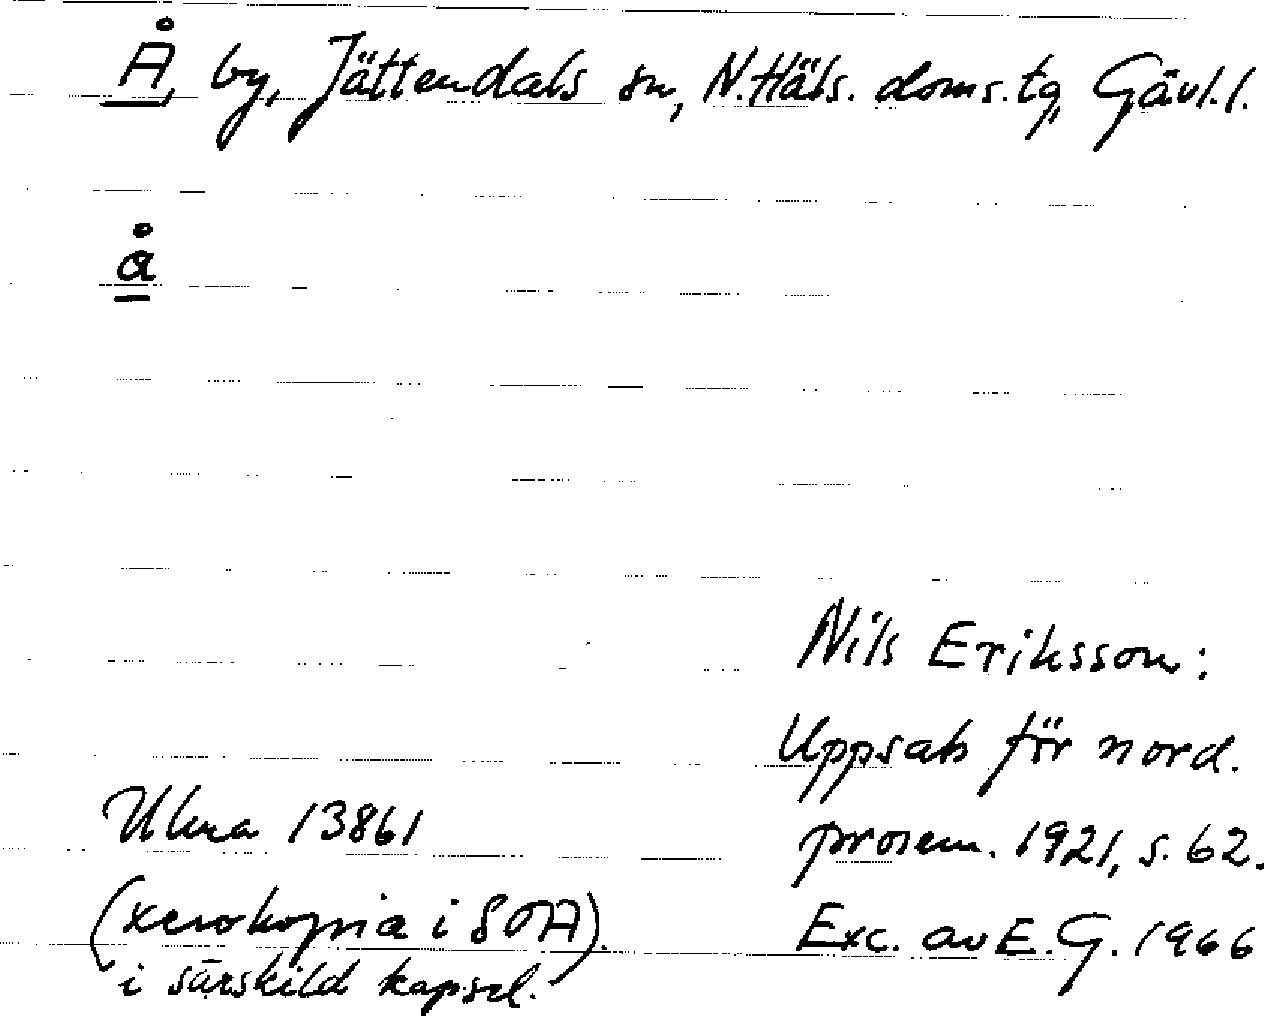 Å, by, Jättendals sn, N.Häls. doms.tg, Gävl.l.
å
Nils Eriksson:
Uppsats för nord.
prosem. 1921, s. 62.
Exc. av E. G. 1966
Ulma 13861
(xerokopia i SOA).
i särskild kapsel.